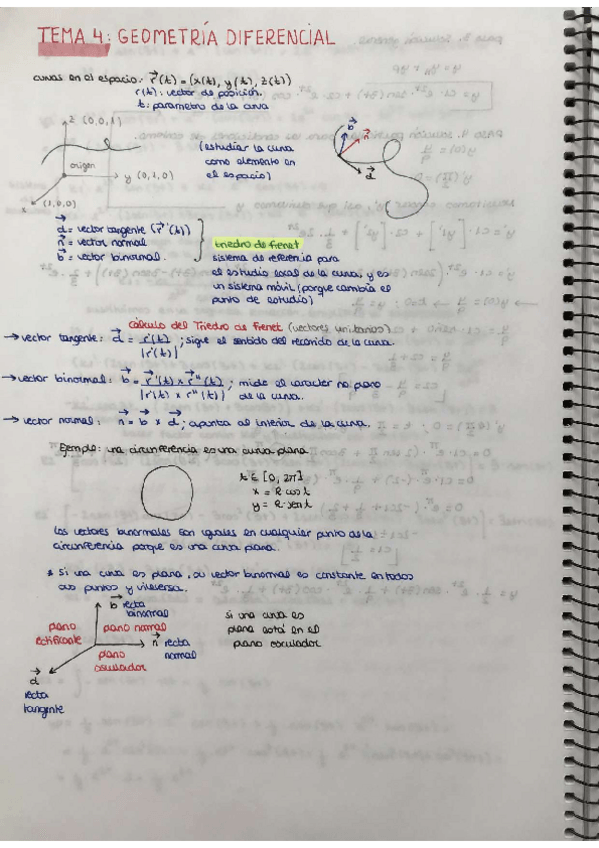 TEMA 4: GEOMETRÍA DIFERENCIAL
curvas en el espacio: r(t) = (x(t), y(t), z(t))
r(t): vector de posición.
t: parametro de la curva
z (0,0,1)
origen
y (0,1,0)
x (1,0,0)
(estudiar la curva
como elemento en
el espacio)
b
n
d
d = vector tangente (r'(t))
n = vector normal
b = vector binormal.
triedro de frenet
sistema de referencia para
el estudio local de la curva, y es
un sistema móvil (porque cambia el
punto de estudio)
Cálculo del Triedro de Frenet (vectores unitarios)
→ vector tangente: d = r'(t) / |r'(t)| ; sigue el sentido del recorrido de la curva.
→ vector binormal: b = r'(t) x r''(t) / |r(t) x r''(t)| ; mide el caracter no plano
de la curva.
→ vector normal: n = b x d ; apunta al interior de la curva.
Ejemplo: una circunferencia es una curva plana
t ∈ [0, 2π]
x = R cos t
y = R · sen t
Los vectores binormales son iguales en cualquier punto de la
circunferencia porque es una curva plana.
* Si una curva es plana, su vector binormal es constante en todos
sus puntos y viceversa.
b recta
binormal
plano
rectificante
plano normal
n recta
normal
plano
osculador
d
recta
tangente
si una curva es
plana está en el
plano osculador